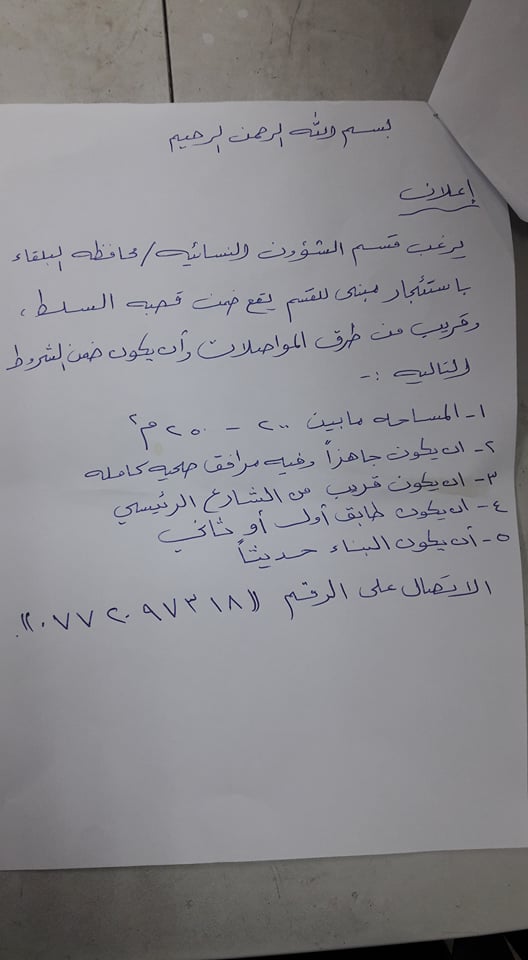 بسم الله الرحمن الرحيم
إعلان
يرغب قسم الشؤون النسائيه / محافظه البلقاء
باستئجار مبنى للقسم يقع ضمن قصبه السلط ،
وقريب من طرق المواصلات وأن يكون ضمن الشروط
التاليه :-
١- المساحه مابين ٢٠٠ - ٢٥٠ م٢
٢- ان يكون جاهزاً وفيه مرافق صحيه كامله
٣- ان يكون قريب من الشارع الرئيسي
٤- ان يكون طابق أول أو ثاني
٥- أن يكون البناء حديثاً
الاتصال على الرقم ((٠٧٧٢٠٩٧٣١٨)).